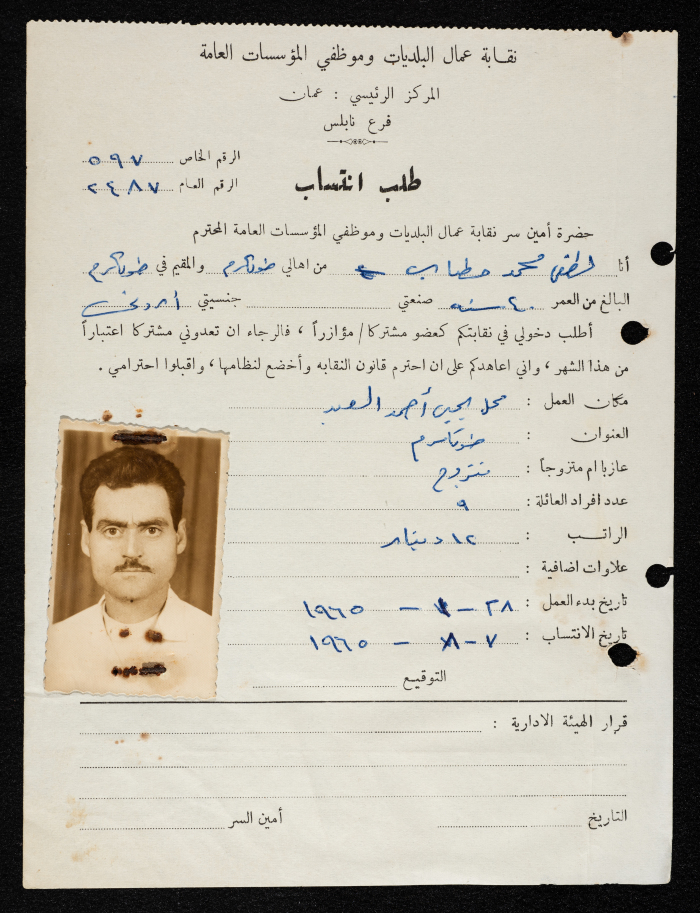 نقابة عمال البلديات وموظفي المؤسسات العامة
المركز الرئيسي : عمان
فرع نابلس
الرقم الخاص ٥٩٧
الرقم العام ٢٤٨٧
طلب انتساب
حضرة أمين سر نقابة عمال البلديات وموظفي المؤسسات العامة المحترم
أنا لطفي محمد حطاب من اهالي طولكرم والمقيم في طولكرم
البالغ من العمر ٤٠ سنه صنعتي جنسيتي أردني
أطلب دخولي في نقابتكم كعضو مشتركا / مؤازراً ، فالرجاء ان تعدوني مشتركا اعتباراً
من هذا الشهر ، واني اعاهدكم على ان احترم قانون النقابه وأخضع لنظامها ، واقبلوا احترامي .
مكان العمل : محل يحيى أحمد السعيد
العنوان : طولكرم
عازبا ام متزوجاً : متزوج
عدد افراد العائلة : ٩
الراتب : ١٢ دينار
علاوات اضافية :
تاريخ بدء العمل : ٢٨ - - ١٩٦٥
تاريخ الانتساب : ٧ - ٨ - ١٩٦٥
التوقيع
قرار الهيئة الادارية :
التاريخ أمين السر